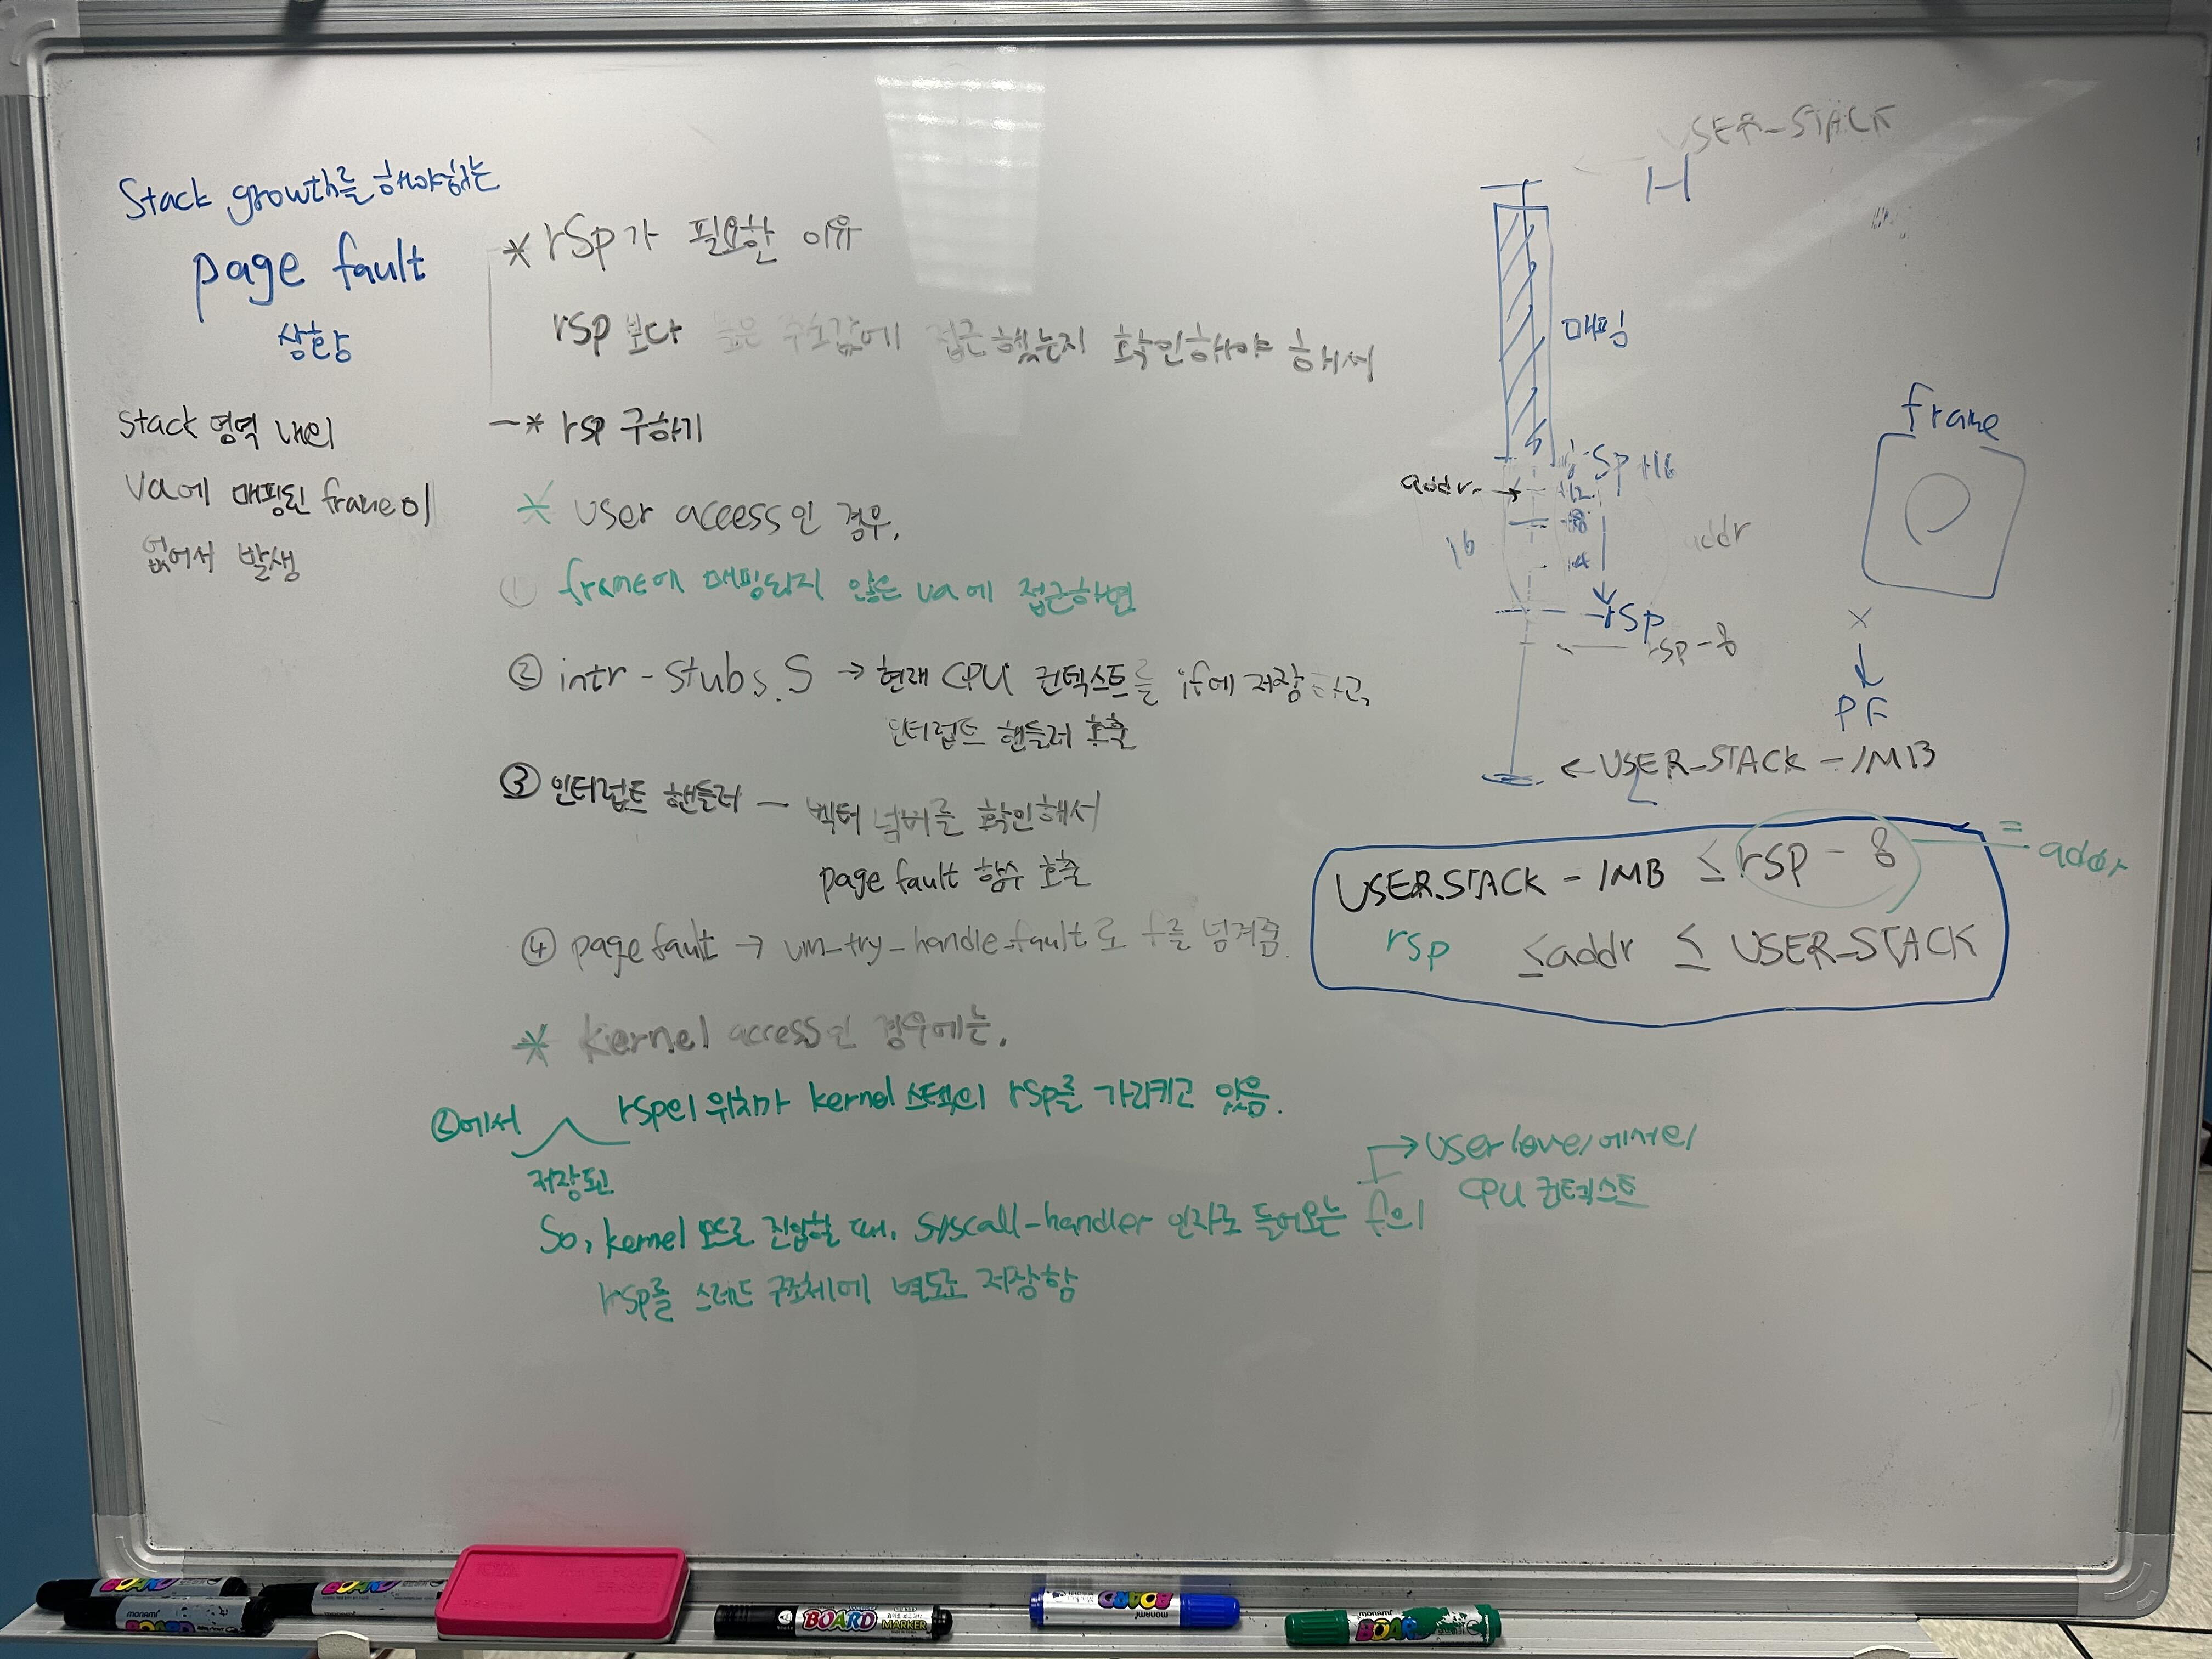 Stack growth를 해야하는
page fault
상황
Stack 영역 내의
va에 매핑된 frame이
없어서 발생
* rsp가 필요한 이유
rsp 보다 높은 주소값에 접근했는지 확인해야 해서
-* rsp 구하기
* user access인 경우,
① frame에 매핑되지 않은 va에 접근하면
② intr-stubs.S → 현재 CPU 컨텍스트를 if에 저장하고,
인터럽트 핸들러 호출
③ 인터럽트 핸들러 - 벡터 넘버를 확인해서
page fault 함수 호출
④ page fault → vm_try_handle_fault로 f를 넘겨줌.
* kernel access인 경우에는,
②에서 rsp의 위치가 kernel 스택의 rsp를 가리키고 있음.
저장된
So, kernel 모드로 진입할 때, syscall-handler 인자로 들어오는 f의
→ user level에서의
CPU 컨텍스트
rsp를 스레드 구조체에 별도로 저장함
← USER_STACK
H
매핑
rsp+16
addr. →
+12
8
16
addr
rsp
← rsp-8
frame
×
↓
PF
← USER_STACK - 1MB
USER_STACK - 1MB ≤ rsp - 8 = addr
rsp ≤ addr ≤ USER_STACK
BOARD
monami
BOARD
BOARD
BOARD MARKER
monami BOARD
monami BOARD